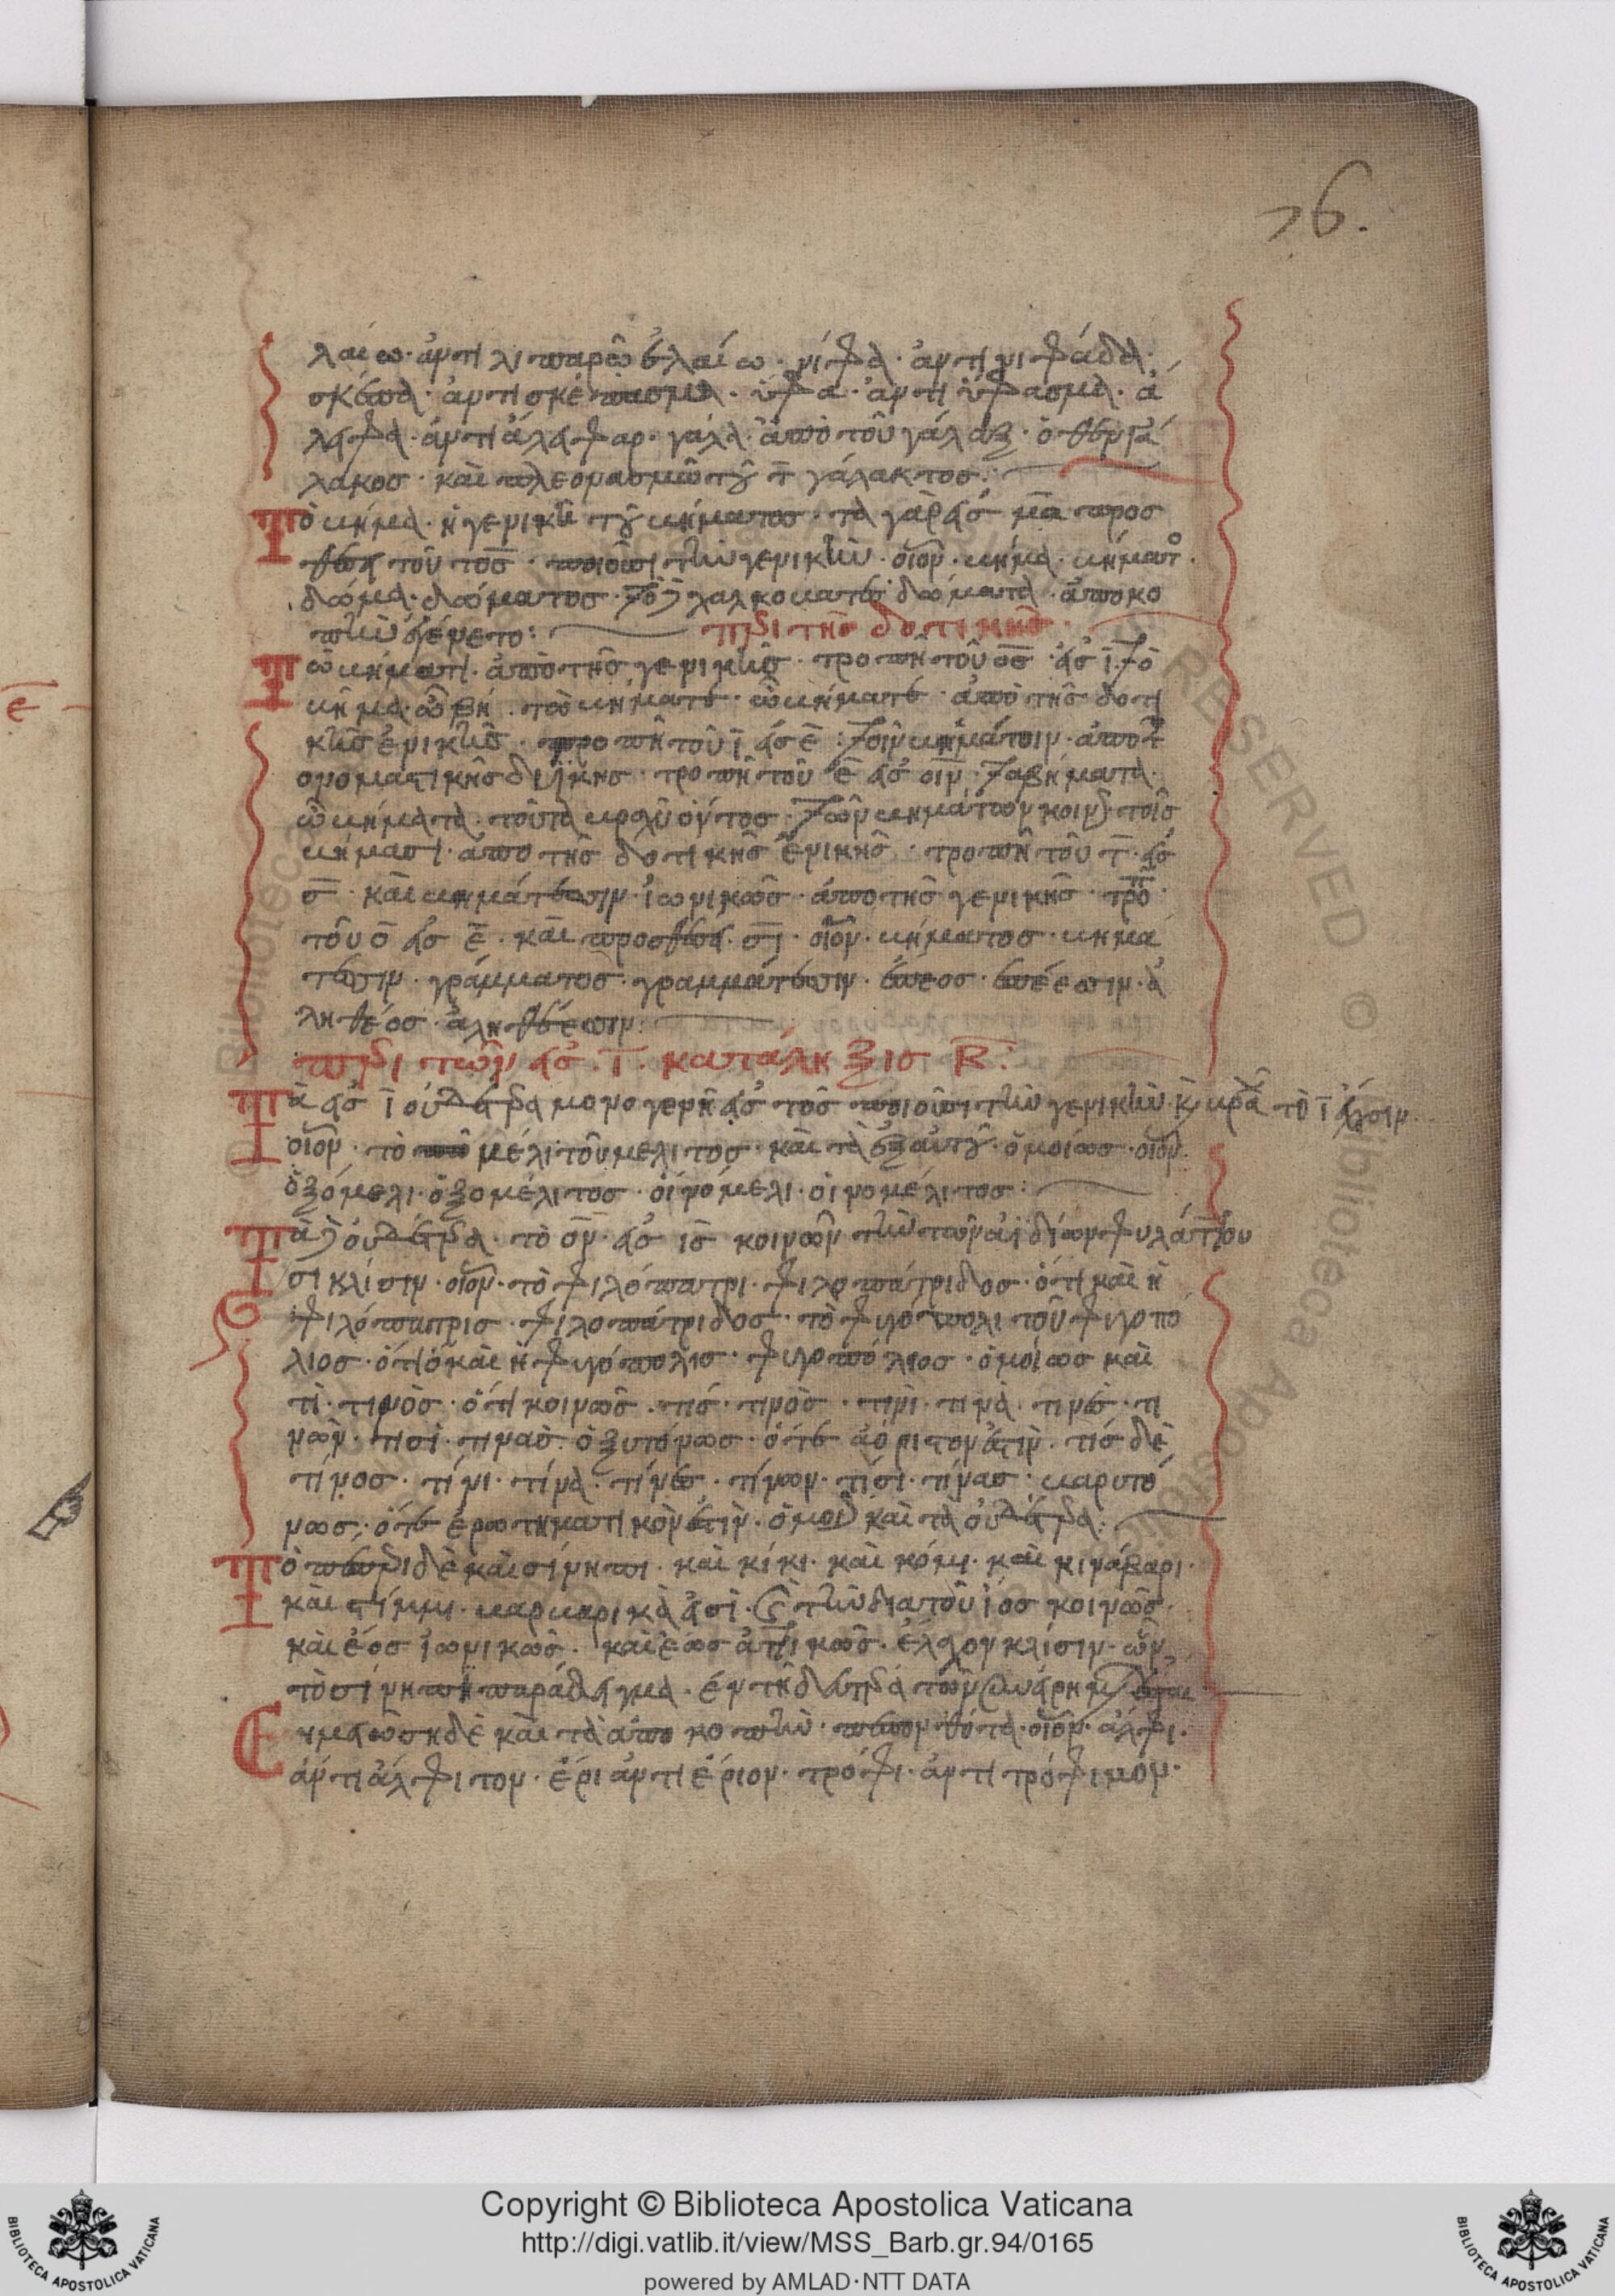 76.
λαίω· ἀντὶ λιπαρῶ ἐλαίω· νίφα· ἀντὶ νιφάδα·
σκέπα· ἀντὶ σκέπασμα· ὕφα· ἀντὶ ὕφασμα· ἄ
λειφα· ἀντὶ ἄλειφαρ· γάλα· ἀπὸ τοῦ γάλαξ· ὅθεν γά
λακος· καὶ πλεονασμῶ τοῦ τ̄ γάλακτος:
Τοῦ βήμα· ἡ γενικὴ τοῦ βήματος· τὰ γὰρ εἰς μᾱ προσ
θέσει τοῦ το̄ς· ποιοῦσι τὴν γενικήν· οἷον· βήμα· βήματο
δώμα· δώματος· τὸ δὲ χαλκοβατὲς δώματα· ἀποκο
πὴν ἐγένετο: περὶ τῆς δοτικῆς·
Τῶ βήματι· ἀπὸ τῆς γενικῆς· τροπῆ τοῦ ο̄ς εἰς ῑ· τὸ
βῆμα· ὦ βῆ τὼ βήματε· ὦ βήματε· ἀπὸ τῆς δοτι
κῆς ἑνικῆς· τροπῆ τοῦ ῑ εἰς ε̄· τοῖν βημάτοιν· ἀπὸ τ
τροπῆ τοῦ ε̄ εἰς οῑν· τὰ βήματα·
ὦ βήματα· τῶν βημάτων τοῖς
βήμασι· ἀπὸ τῆς δοτικῆς ἑνικῆς· τροπῆ τοῦ τ̄· εἰς
σ̄· καὶ βημάτεσσιν· ἰωνικῶς· ἀπὸ τῆς γενικῆς· τρο
τοῦ ο̄ εἰς ε̄· καὶ προσθέσει· σῑ· οἷον· βήματος· βημα
τεσσιν· γράμματος· γραμμάτεσσιν· ἔπεος· ἐπέεσσιν· ἀ
ληθέος· ἀληθέεσσιν:
περὶ τῶν εἰς· ῑ· κατάληξις Β̄:
Τὰ εἰς ῑ οὐδέτερα μονογενῆ εἰς τος ποιοῦσι τὴν γενικὴν τὸ ῑ ἔχουσιν·
οἷον· τὸ μέλι τοῦ μέλιτος· καὶ τὰ ἐξ αὐτοῦ· ὁμοίως· οἷον·
ὀξόμελι· ὀξομέλιτος· οἰνόμελι· οἰνομέλιτος:
Τὰ δὲ οὐδέτερα· τῶν εἰς ῑς κοινῶν τὴν τῶν ἰδίων φυλάττου
σι κλίσιν· οἷον· τὸ φιλόπατρι· φιλοπάτριδος· ὅτι καὶ ἡ
φιλόπατρις· φιλοπάτριδος· τὸ φιλόπολι τοῦ φιλοπό
λιος· ὅτι ὁ καὶ ἡ φιλόπολις· φιλοπόλιος· ὁμοίως καὶ
τὶ· τινὸς· ὅτι κοινῶς· τὶς· τινὸς· τινὶ· τινὰ· τινὲς· τι
νῶν· τισὶ· τινὰς· ὀξυτόνως· ὅτε ἀόριστόν ἐστιν· τίς δὲ
τίνος· τίνι· τίνα· τίνες· τίνων· τίσι· τίνας: βαρυτό
νως· ὅτε ἐρωτηματικόν ἐστιν· ὁμοί καὶ τὰ οὐδέτερα:
Τὸ πέπερι δὲ καὶ σίνηπι· καὶ κίκι· καὶ κόμι· καὶ κινάβαρι·
καὶ στίμμι· βαρβαρικὰ εἰσὶ· τὴν διὰ τοῦ ίος κοινῶς·
καὶ έος ἰωνικῶς· καὶ έως ἀττικῶς· ἔλαχον κλίσιν· ὧν
τὸ σίνηπι παράδειγμα· ἐν τῆ δευτέρα τῶν
Ση δὲ καὶ τὰ ἀποκοπὴν πεπονθότα· οἷον· ἄλφι·
ἀντὶ ἄλφιτον· ἔρι ἀντὶ ἔριον· τρόφι· ἀντὶ τρόφιμον·
Copyright © Biblioteca Apostolica Vaticana
http://digi.vatlib.it/view/MSS_Barb.gr.94/0165
powered by AMLAD·NTT DATA
BIBLIOTECA APOSTOLICA VATICANA
BIBLIOTECA APOSTOLICA VATICANA